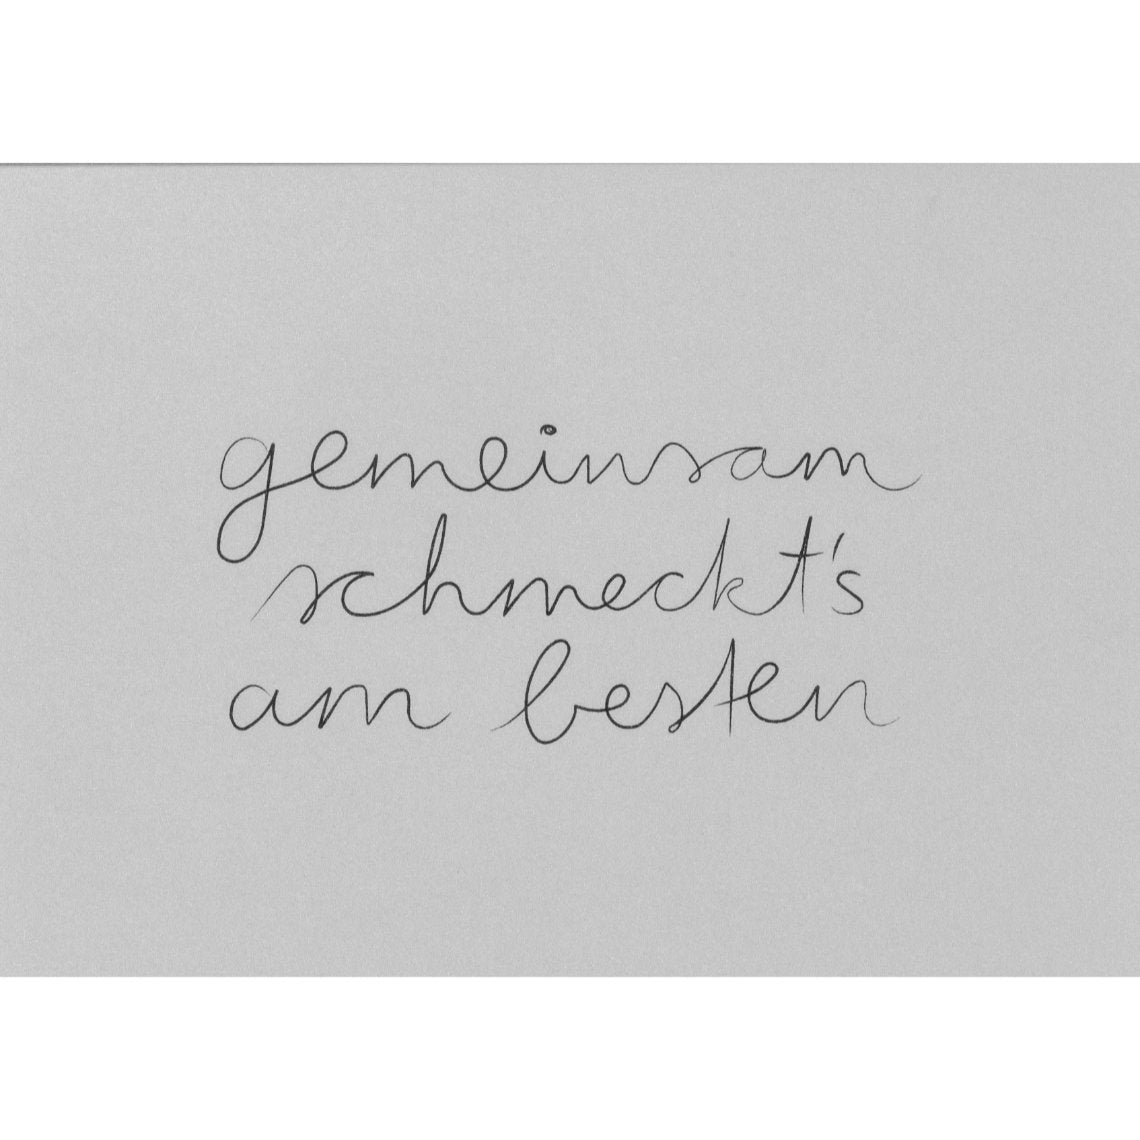 gemeinsam
schmeckt's
am besten